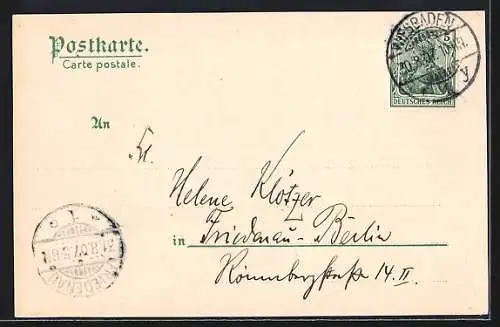 Postkarte.
Carte postale.
WIESBADEN
DEUTSCHES REICH
y
An
Fr.
Helene Klötzer
in Friedenau-Berlin
Rönnebergstraße 14. II.
FRIEDENAU